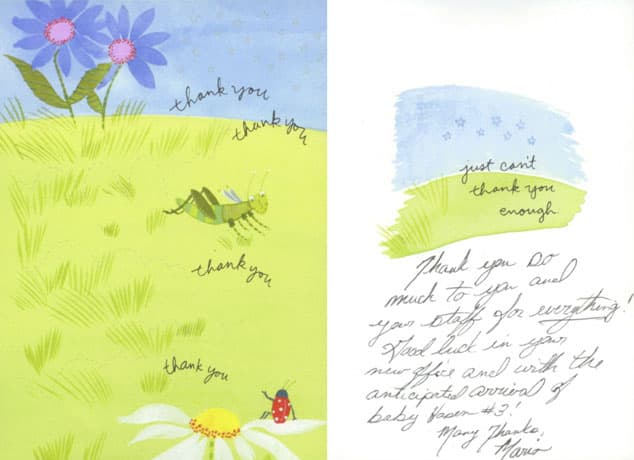 thank you
thank you
thank you
thank you
just can't
thank you
enough
Thank you so
much to you and
your staff for everything!
Good luck in your
new office and with the
anticipated arrival of
baby Hasen #3!
Many Thanks,
Maria